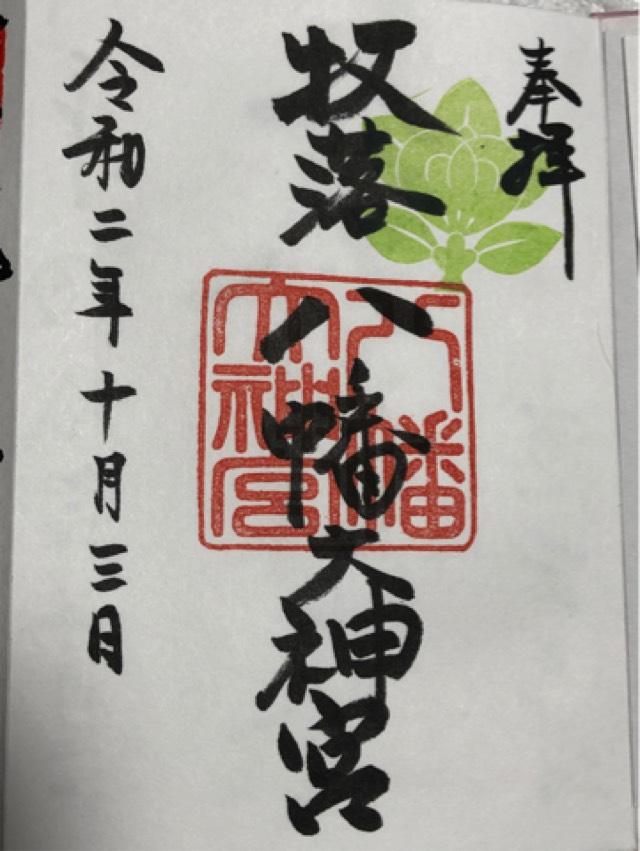 奉拝
牧落八幡大神宮
八幡
大神宮
令和二年十月三日